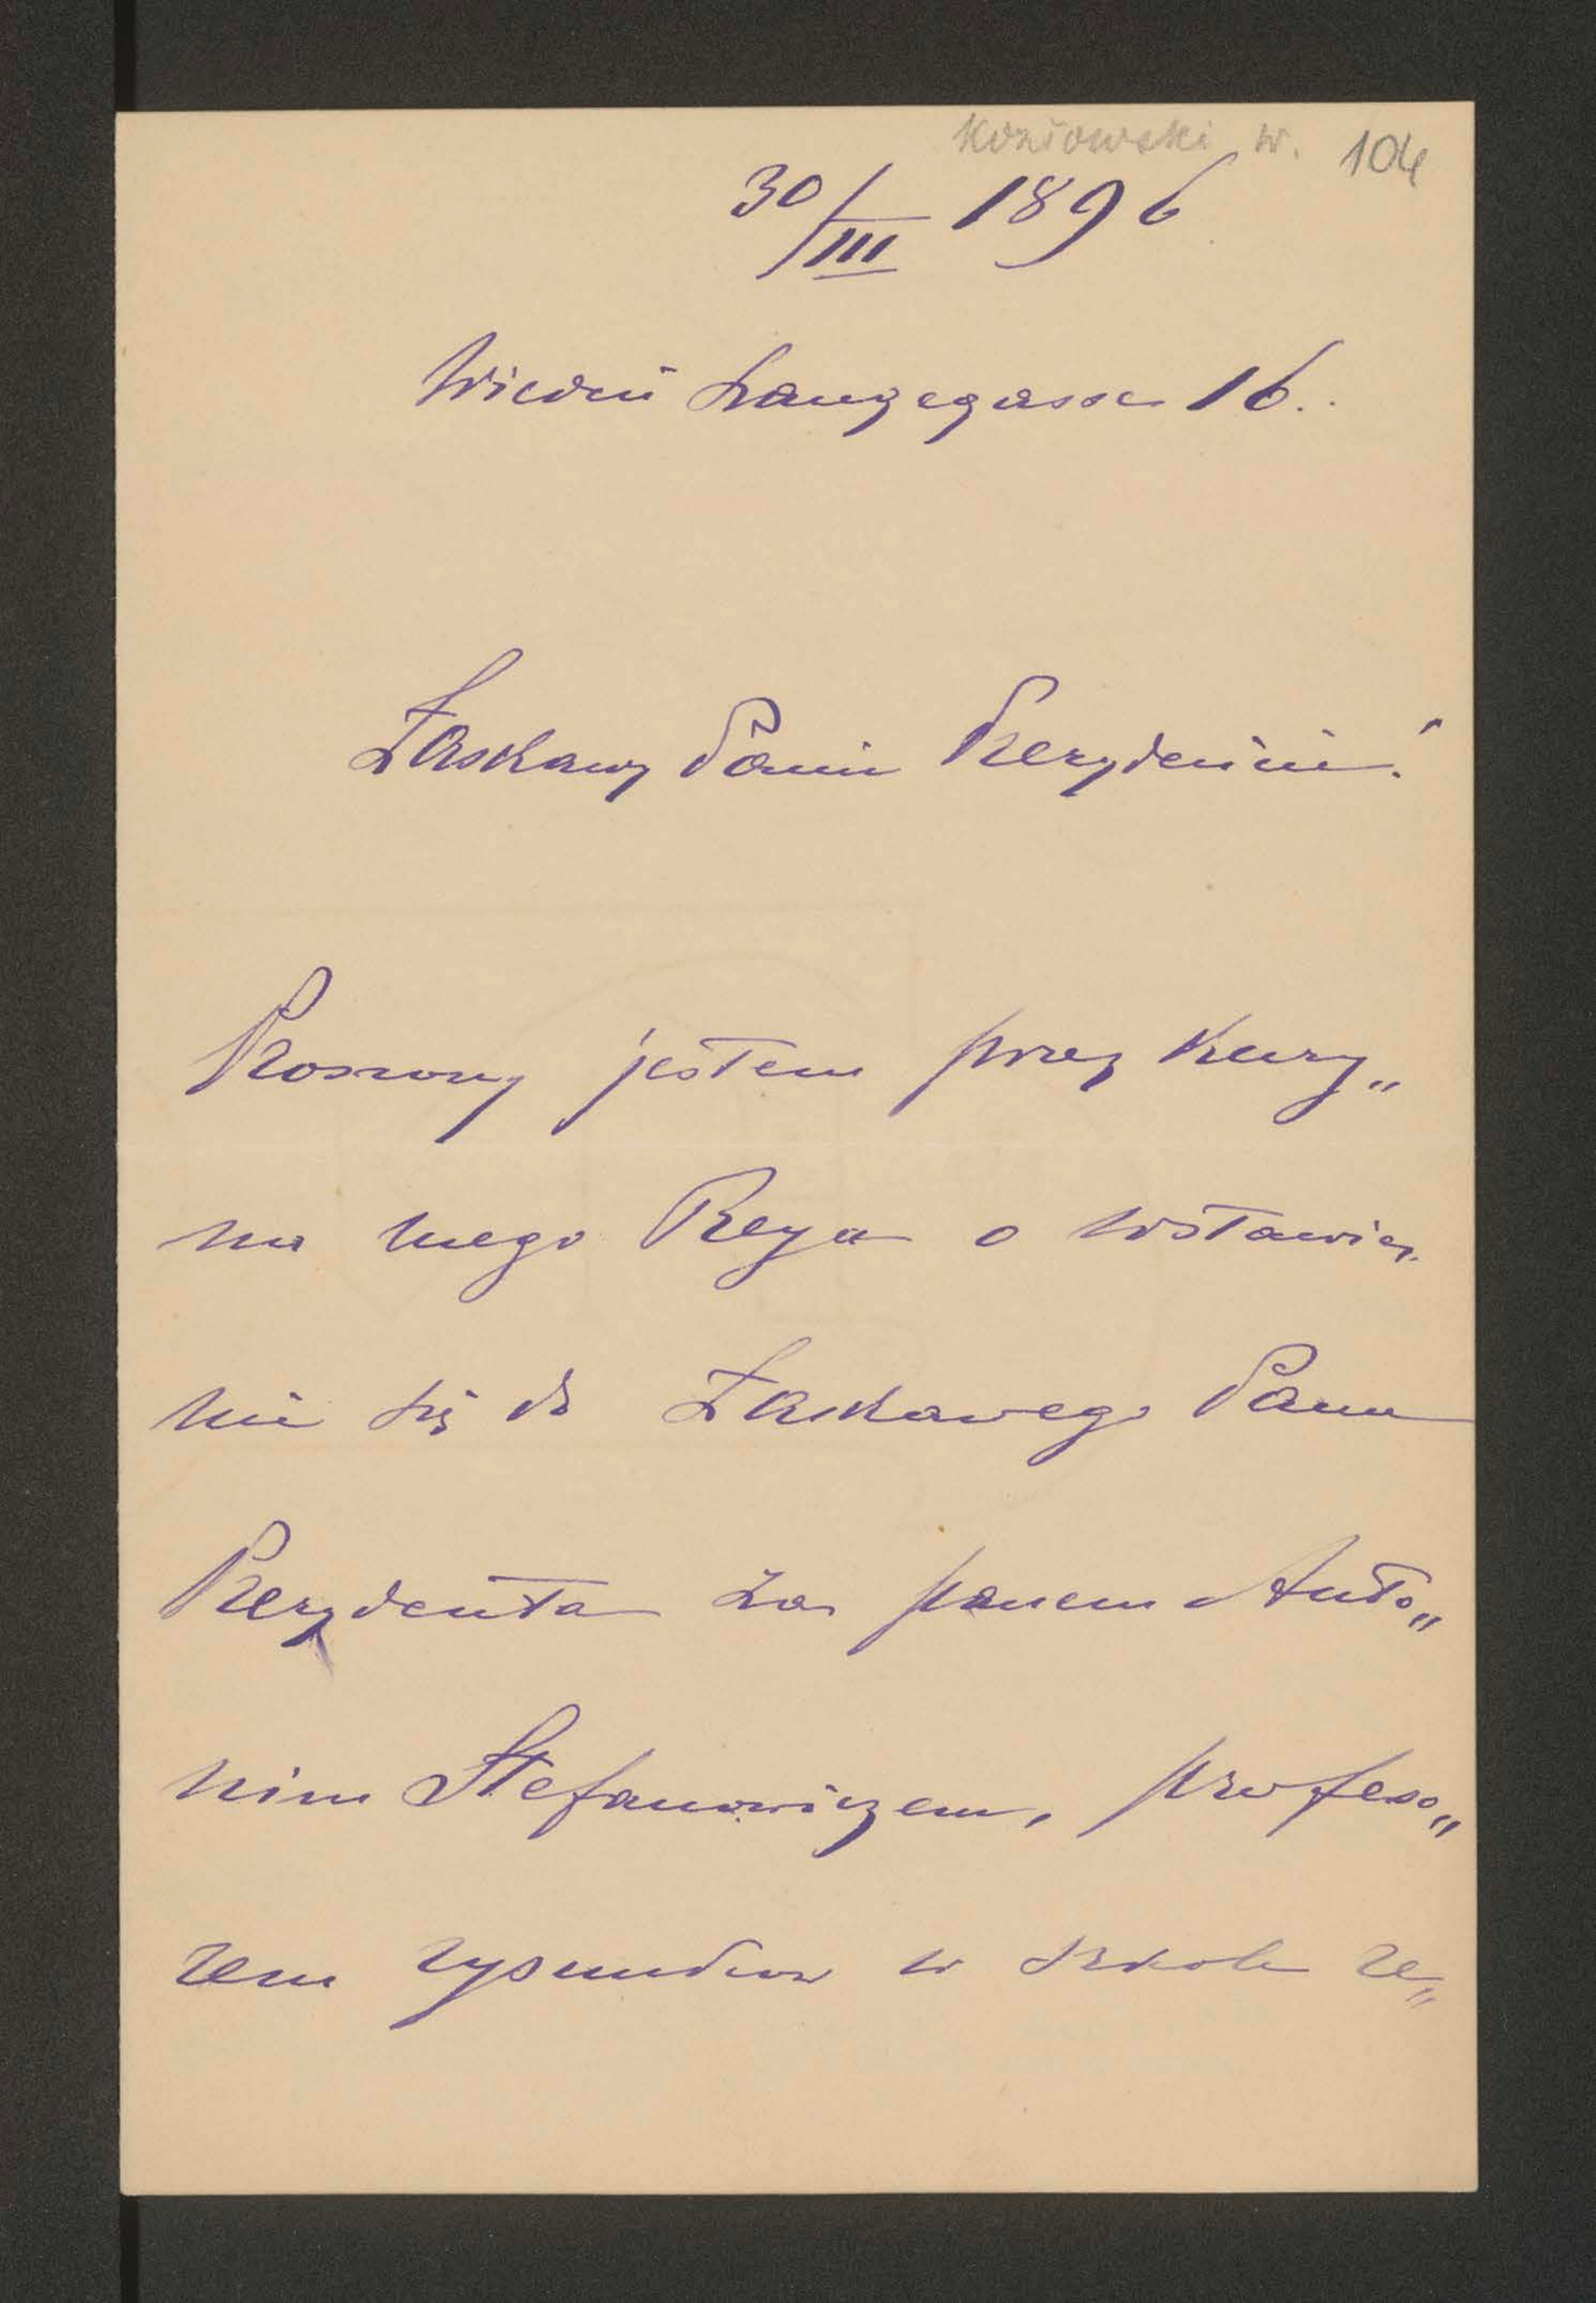 Kozłowski W. 104
30/III 1896
Wiedeń Langegasse 16.
Łaskawy Panie Prezydencie!
Proszony jestem przez Kuzy„
na mego Reya o wstawie„
nie się do Łaskawego Pana
Prezydenta za panem Anto„
nim Stefanowiczem, profeso„
rem rysunków w szkole re„